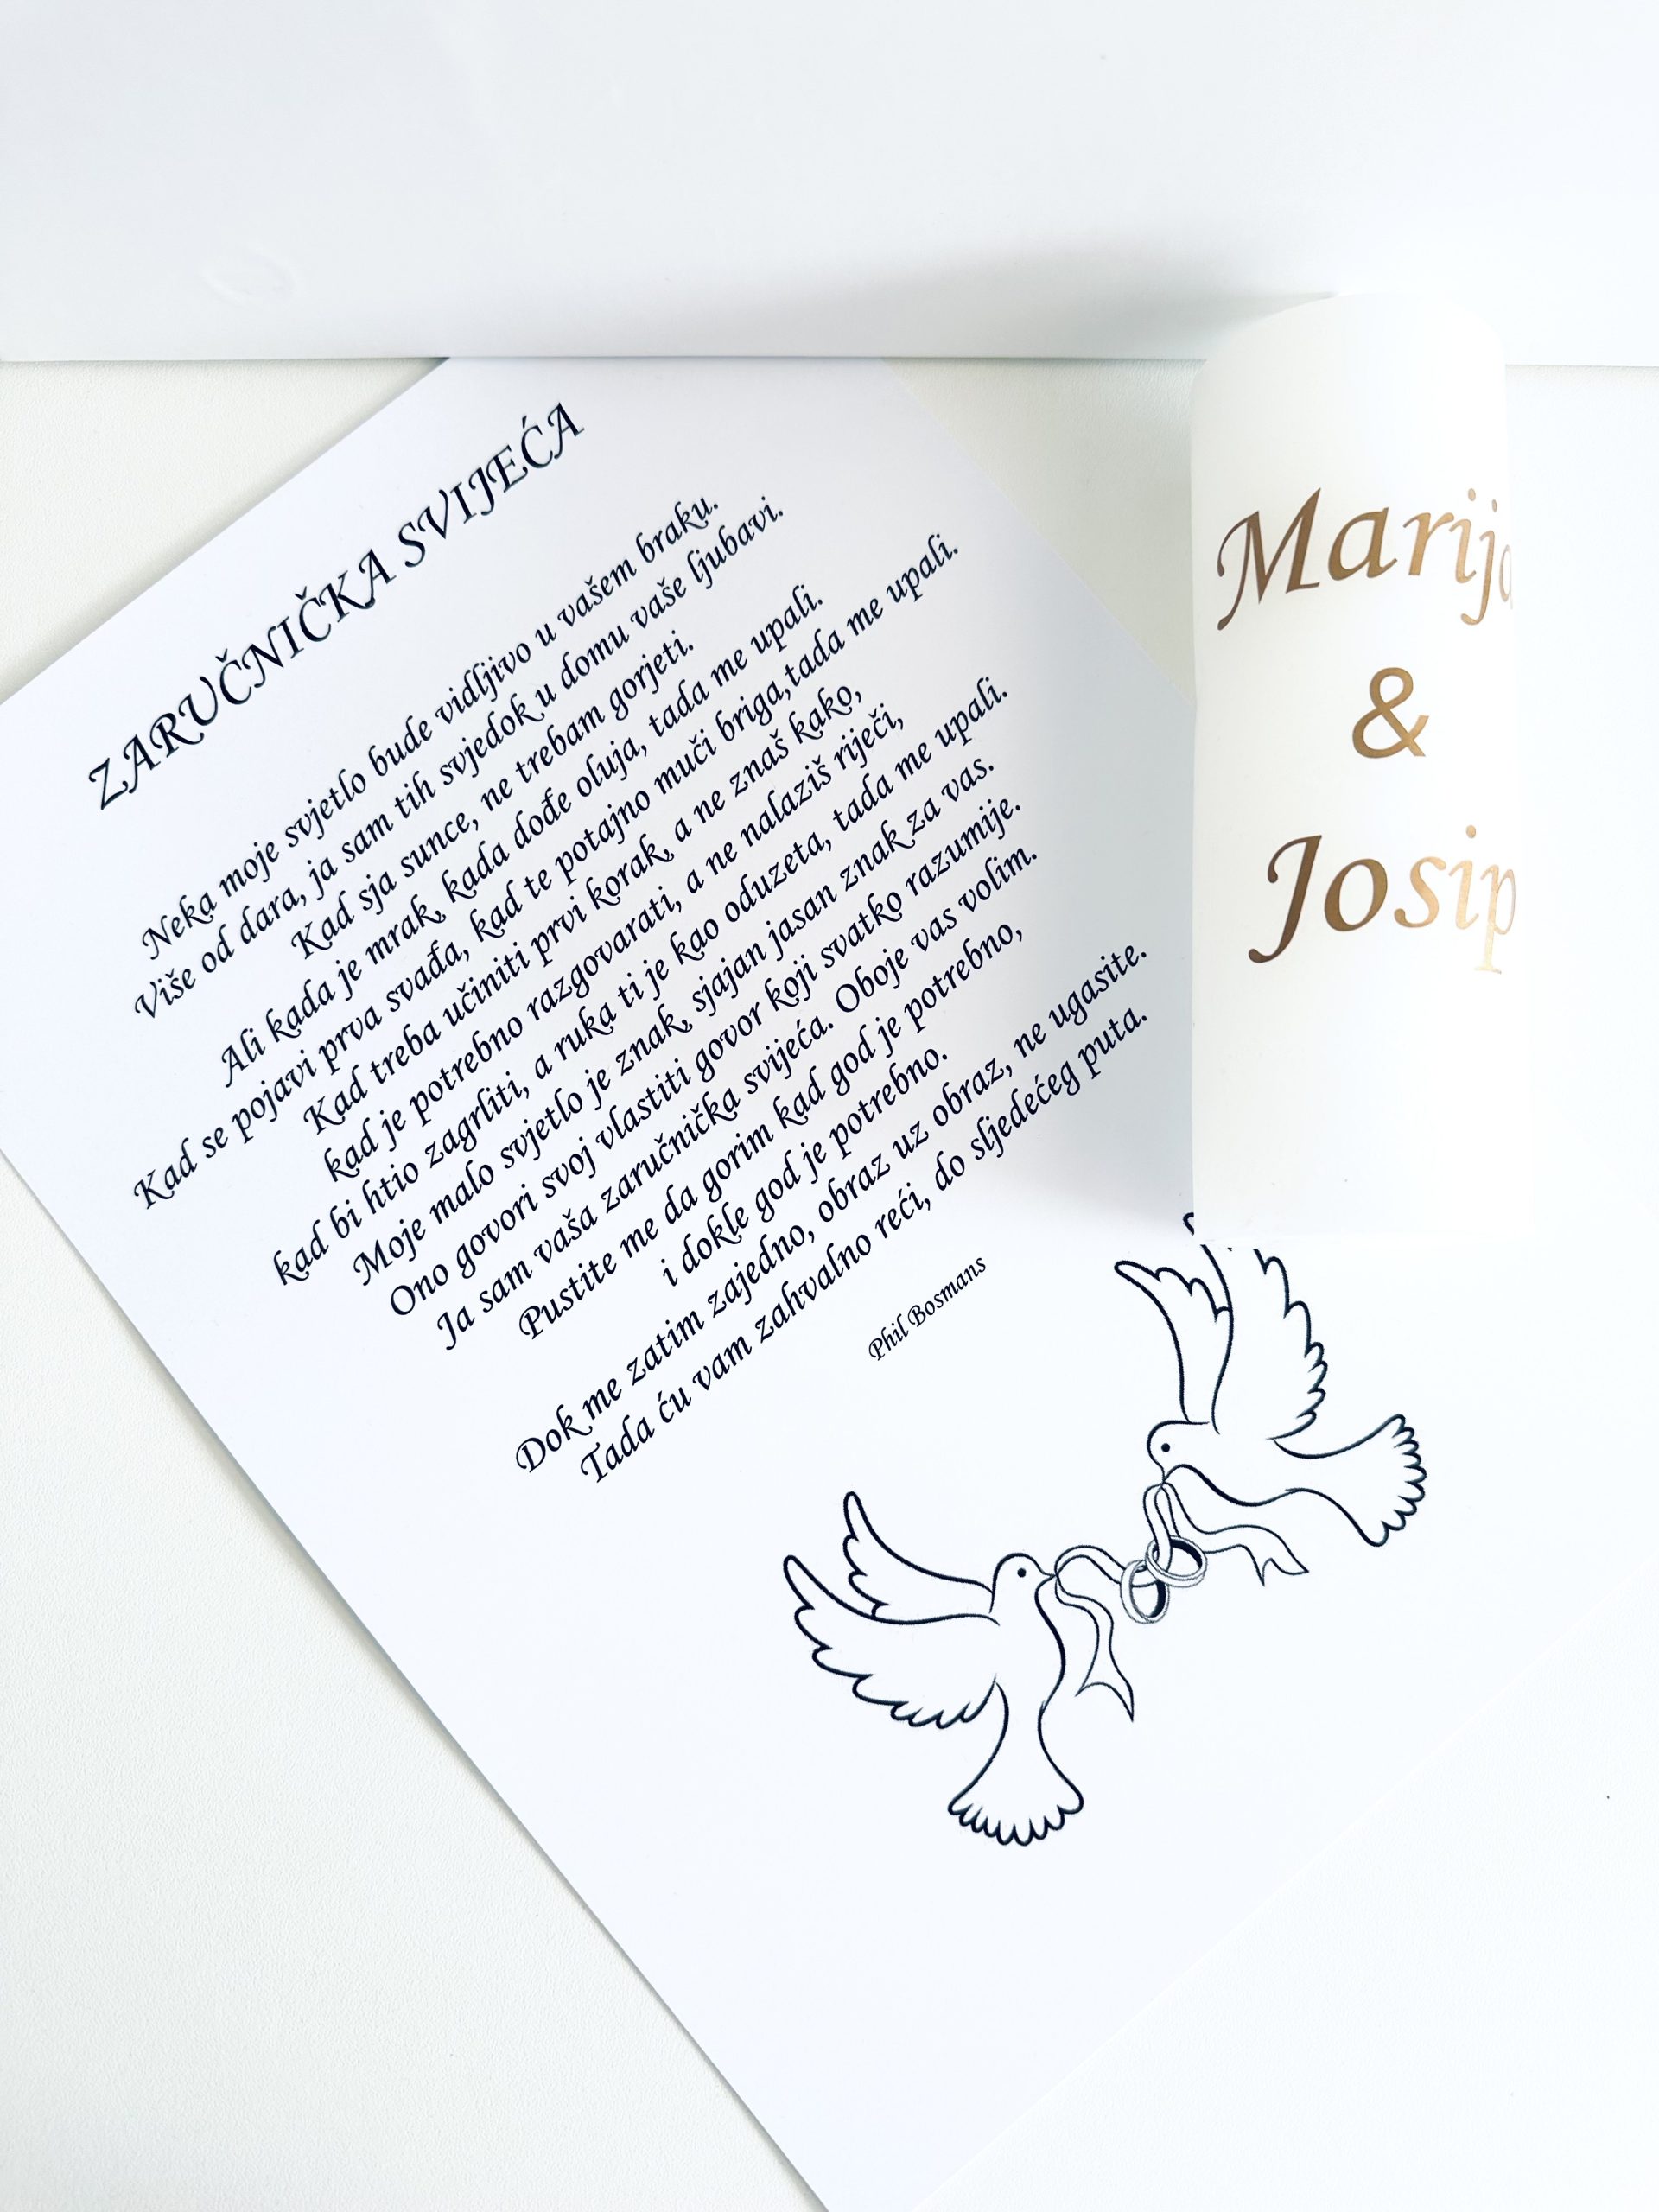 ZARUČNIČKA SVIJEĆA
Neka moje svjetlo bude vidljivo u vašem braku.
Više od dara, ja sam tih svjedok u domu vaše ljubavi.
Kad sja sunce, ne trebam gorjeti.
Ali kada je mrak, kada dođe oluja, tada me upali.
Kad se pojavi prva svađa, kad te potajno muči briga,tada me upali.
Kad treba učiniti prvi korak, a ne znaš kako,
kad je potrebno razgovarati, a ne nalaziš riječi,
kad bi htio zagrliti, a ruka ti je kao oduzeta, tada me upali.
Moje malo svjetlo je znak, sjajan jasan znak za vas.
Ono govori svoj vlastiti govor koji svatko razumije.
Ja sam vaša zaručnička svijeća. Oboje vas volim.
Pustite me da gorim kad god je potrebno,
i dokle god je potrebno.
Dok me zatim zajedno, obraz uz obraz, ne ugasite.
Tada ću vam zahvalno reći, do sljedećeg puta.
Phil Bosmans
Marija
&
Josip